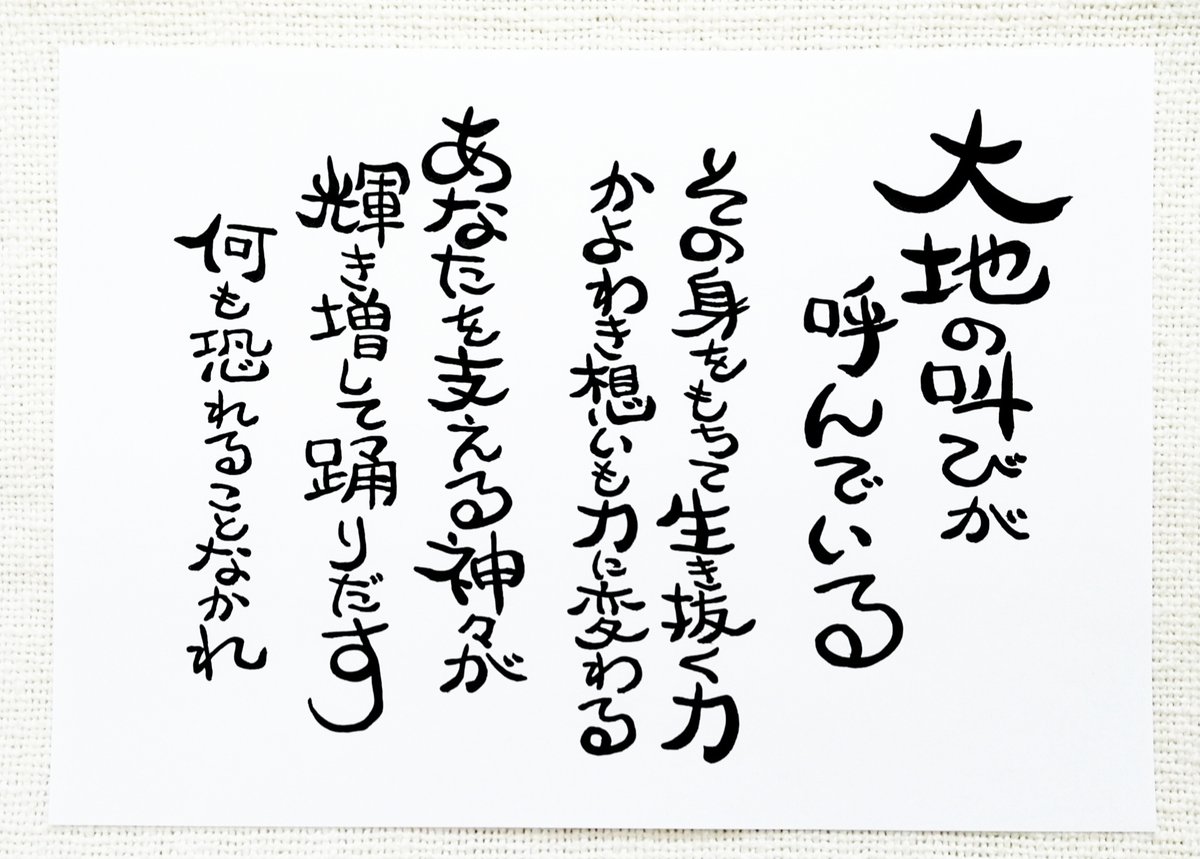 大地の叫びが
呼んでいる
その身をもちて生き抜く力
かよわき想いも力に変わる
あなたを支える神々が
輝き増して踊りだす
何も恐れることなかれ